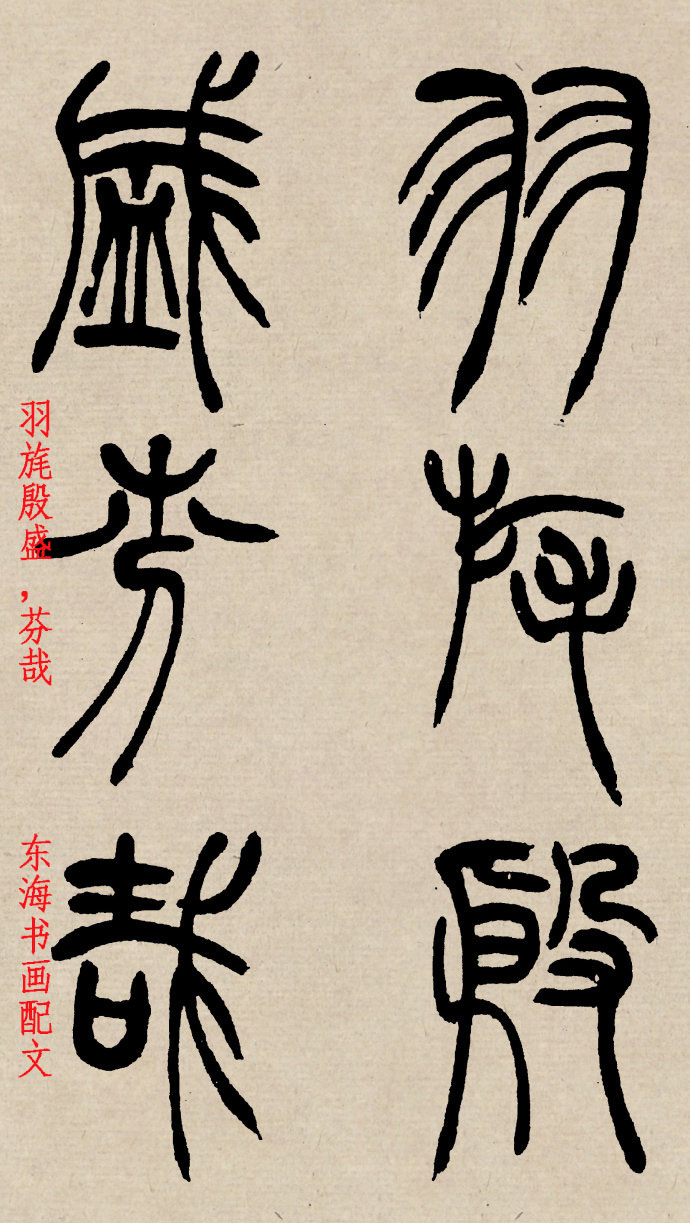 羽旄殷
盛芬哉
羽旄殷盛,芬哉
东海书画配文